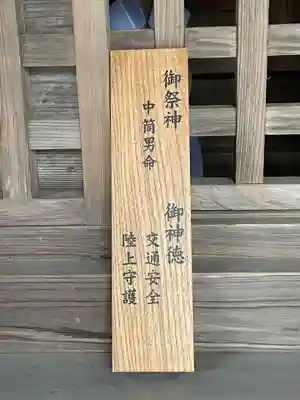 御祭神
中筒男命
御神徳
交通安全
陸上守護